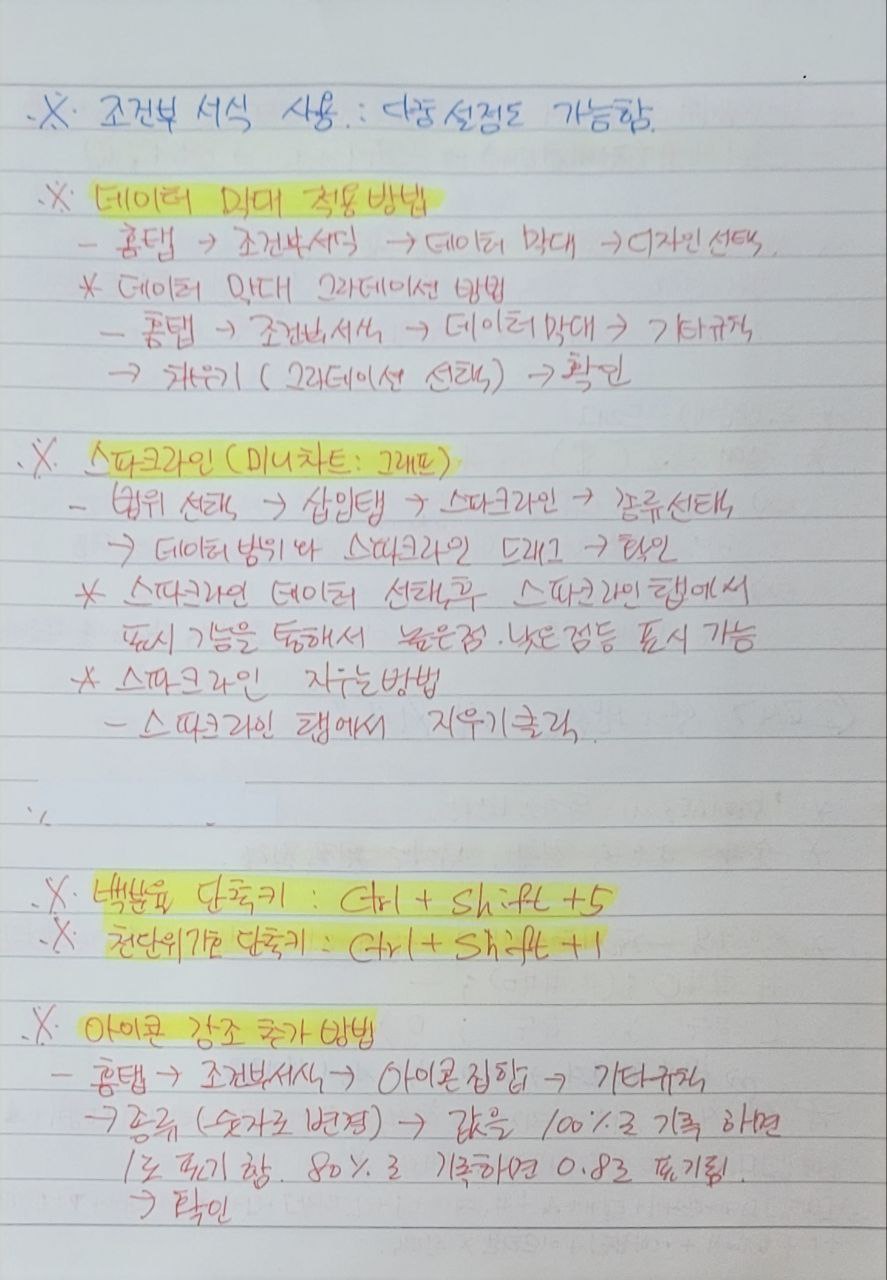 ※ 조건부 서식 사용 : 다중설정도 가능함.
※ 데이터 막대 적용방법
- 홈탭 → 조건부서식 → 데이터 막대 → 디자인선택.
* 데이터 막대 그라데이션 방법
- 홈탭 → 조건부서식 → 데이터막대 → 기타규칙
→ 채우기 (그라데이션 선택) → 확인
※ 스파크라인 (미니차트 : 그래프)
- 범위 선택 → 삽입탭 → 스파크라인 → 종류선택
→ 데이터범위와 스파크라인 드래그 → 확인
* 스파크라인 데이터 선택후 스파크라인탭에서
표시 기능을 통해서 높은점.낮은점등 표시 가능
* 스파크라인 지우는방법
- 스파크라인 탭에서 지우기클릭.
※ 백분율 단축키 : Ctrl + Shift + 5
※ 천단위기호 단축키 : Ctrl + Shift + 1
※ 아이콘 강조 추가 방법
- 홈탭 → 조건부서식 → 아이콘집합 → 기타규칙
→ 종류 (숫자로 변경) → 값을 100%로 기록 하면
1로 표기 함. 80%로 기록하면 0.8로 표기됨.
→ 확인